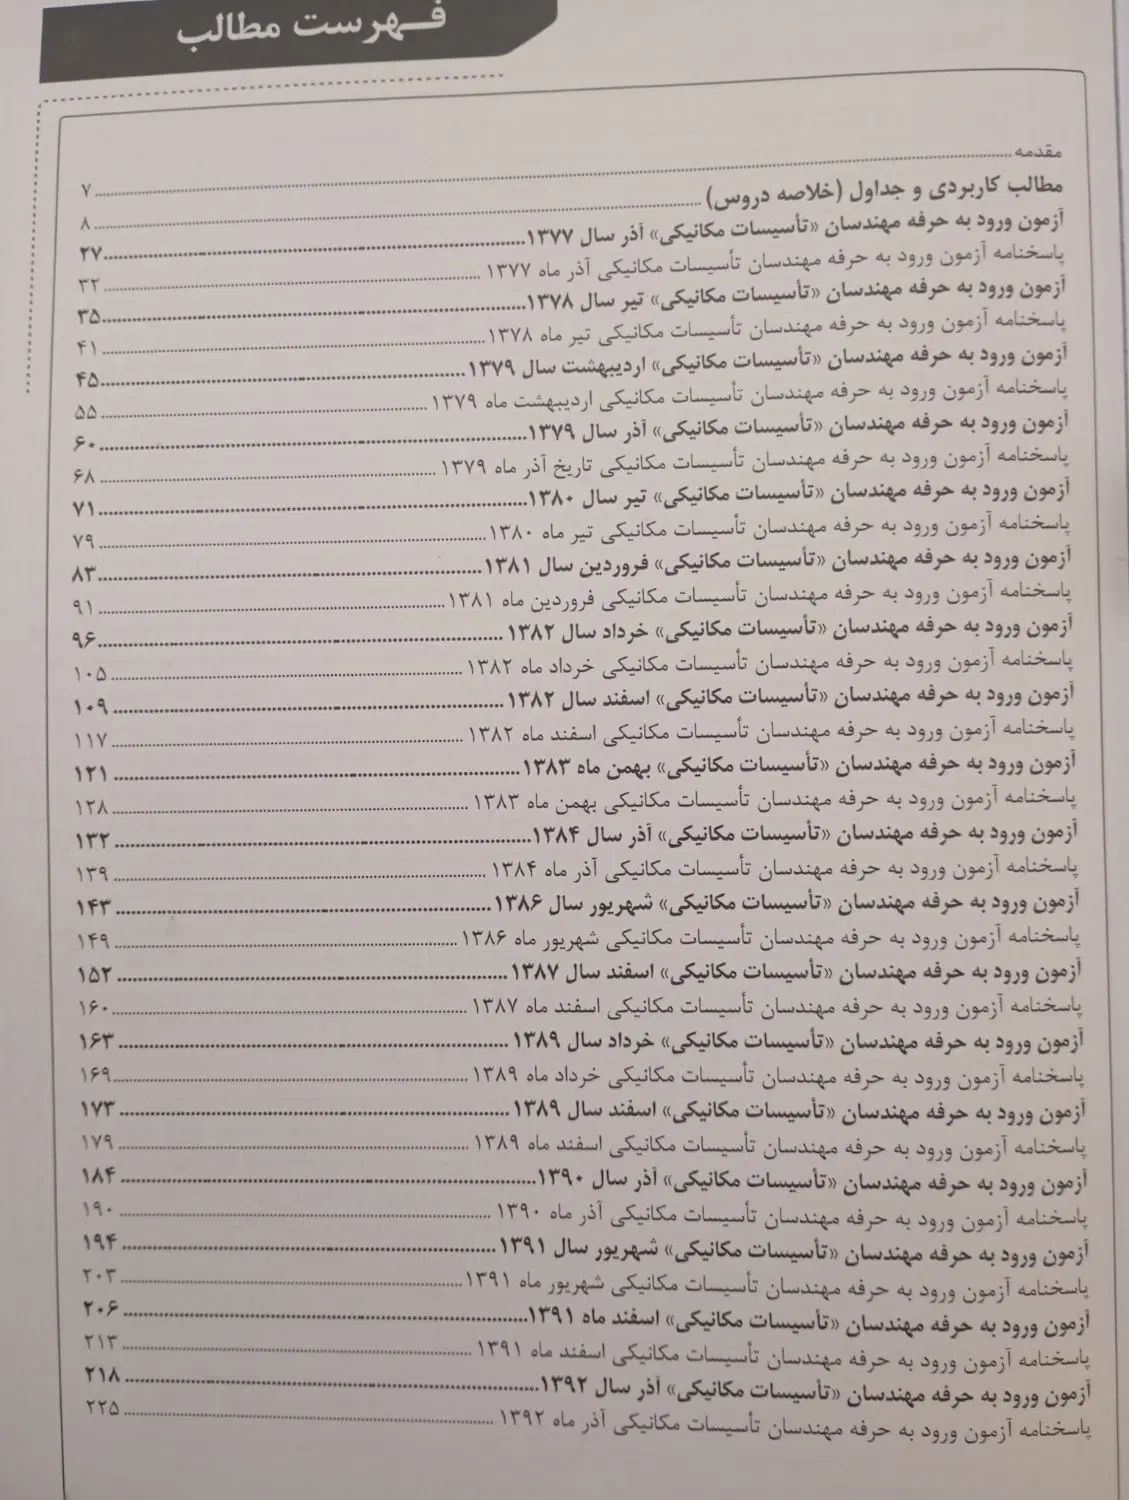 فهرست مطالب
مقدمه ... ۷
مطالب کاربردی و جداول (خلاصه دروس) ... ۸
آزمون ورود به حرفه مهندسان «تأسیسات مکانیکی» آذر سال ۱۳۷۷ ... ۲۷
پاسخنامه آزمون ورود به حرفه مهندسان تأسیسات مکانیکی آذر ماه ۱۳۷۷ ... ۳۲
آزمون ورود به حرفه مهندسان «تأسیسات مکانیکی» تیر سال ۱۳۷۸ ... ۳۵
پاسخنامه آزمون ورود به حرفه مهندسان تأسیسات مکانیکی تیر ماه ۱۳۷۸ ... ۴۱
آزمون ورود به حرفه مهندسان «تأسیسات مکانیکی» اردیبهشت سال ۱۳۷۹ ... ۴۵
پاسخنامه آزمون ورود به حرفه مهندسان تأسیسات مکانیکی اردیبهشت ماه ۱۳۷۹ ... ۵۵
آزمون ورود به حرفه مهندسان «تأسیسات مکانیکی» آذر سال ۱۳۷۹ ... ۶۰
پاسخنامه آزمون ورود به حرفه مهندسان تأسیسات مکانیکی تاریخ آذر ماه ۱۳۷۹ ... ۶۸
آزمون ورود به حرفه مهندسان «تأسیسات مکانیکی» تیر سال ۱۳۸۰ ... ۷۱
پاسخنامه آزمون ورود به حرفه مهندسان تأسیسات مکانیکی تیر ماه ۱۳۸۰ ... ۷۹
آزمون ورود به حرفه مهندسان «تأسیسات مکانیکی» فروردین سال ۱۳۸۱ ... ۸۳
پاسخنامه آزمون ورود به حرفه مهندسان تأسیسات مکانیکی فروردین ماه ۱۳۸۱ ... ۹۱
آزمون ورود به حرفه مهندسان «تأسیسات مکانیکی» خرداد سال ۱۳۸۲ ... ۹۶
پاسخنامه آزمون ورود به حرفه مهندسان تأسیسات مکانیکی خرداد ماه ۱۳۸۲ ... ۱۰۵
آزمون ورود به حرفه مهندسان «تأسیسات مکانیکی» اسفند سال ۱۳۸۲ ... ۱۰۹
پاسخنامه آزمون ورود به حرفه مهندسان تأسیسات مکانیکی اسفند ماه ۱۳۸۲ ... ۱۱۷
آزمون ورود به حرفه مهندسان «تأسیسات مکانیکی» بهمن ماه ۱۳۸۳ ... ۱۲۱
پاسخنامه آزمون ورود به حرفه مهندسان تأسیسات مکانیکی بهمن ماه ۱۳۸۳ ... ۱۲۸
آزمون ورود به حرفه مهندسان «تأسیسات مکانیکی» آذر سال ۱۳۸۴ ... ۱۳۲
پاسخنامه آزمون ورود به حرفه مهندسان تأسیسات مکانیکی آذر ماه ۱۳۸۴ ... ۱۳۹
آزمون ورود به حرفه مهندسان «تأسیسات مکانیکی» شهریور سال ۱۳۸۶ ... ۱۴۳
پاسخنامه آزمون ورود به حرفه مهندسان تأسیسات مکانیکی شهریور ماه ۱۳۸۶ ... ۱۴۹
آزمون ورود به حرفه مهندسان «تأسیسات مکانیکی» اسفند سال ۱۳۸۷ ... ۱۵۲
پاسخنامه آزمون ورود به حرفه مهندسان تأسیسات مکانیکی اسفند ماه ۱۳۸۷ ... ۱۶۰
آزمون ورود به حرفه مهندسان «تأسیسات مکانیکی» خرداد سال ۱۳۸۹ ... ۱۶۳
پاسخنامه آزمون ورود به حرفه مهندسان تأسیسات مکانیکی خرداد ماه ۱۳۸۹ ... ۱۶۹
آزمون ورود به حرفه مهندسان «تأسیسات مکانیکی» اسفند سال ۱۳۸۹ ... ۱۷۳
پاسخنامه آزمون ورود به حرفه مهندسان تأسیسات مکانیکی اسفند ماه ۱۳۸۹ ... ۱۷۹
آزمون ورود به حرفه مهندسان «تأسیسات مکانیکی» آذر سال ۱۳۹۰ ... ۱۸۴
پاسخنامه آزمون ورود به حرفه مهندسان تأسیسات مکانیکی آذر ماه ۱۳۹۰ ... ۱۹۰
آزمون ورود به حرفه مهندسان «تأسیسات مکانیکی» شهریور سال ۱۳۹۱ ... ۱۹۴
پاسخنامه آزمون ورود به حرفه مهندسان تأسیسات مکانیکی شهریور ماه ۱۳۹۱ ... ۲۰۳
آزمون ورود به حرفه مهندسان «تأسیسات مکانیکی» اسفند ماه ۱۳۹۱ ... ۲۰۶
پاسخنامه آزمون ورود به حرفه مهندسان تأسیسات مکانیکی اسفند ماه ۱۳۹۱ ... ۲۱۳
آزمون ورود به حرفه مهندسان «تأسیسات مکانیکی» آذر سال ۱۳۹۲ ... ۲۱۸
پاسخنامه آزمون ورود به حرفه مهندسان تأسیسات مکانیکی آذر ماه ۱۳۹۲ ... ۲۲۵